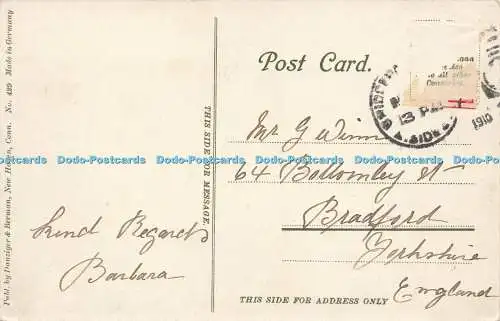 Post Card.
Publ. by Danziger & Berman, New Haven, Conn. No. 429 Made in Germany
THIS SIDE FOR MESSAGE.
Mr G
64 Bottomley St
Bradford
Yorkshire
England
Kind Regards
Barbara
THIS SIDE FOR ADDRESS ONLY
1910
Dodo-Postcards Dodo-Postcards Dodo-Postcards Dodo-Postcards